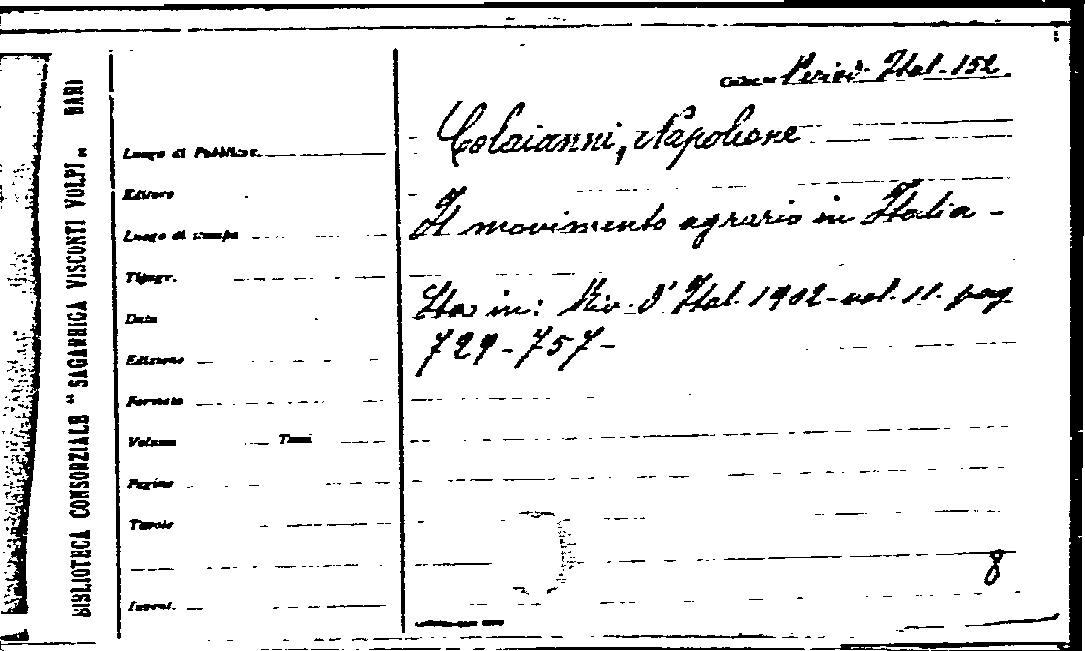 BIBLIOTECA CONSORZIALE "SAGARRIGA VISCONTI VOLPI" BARI
Colloc. Period. Ital. 152
Colaianni, Napoleone
Il movimento agrario in Italia -
Sta in: Riv. d'Ital. 1902 - vol. II. pag
729 - 757 -
Luogo di Pubblicaz.
Editore
Luogo di stampa
Tipogr.
Data
Edizione
Formato
Volume Tomi
Pagine
Tavole
Invent.
8